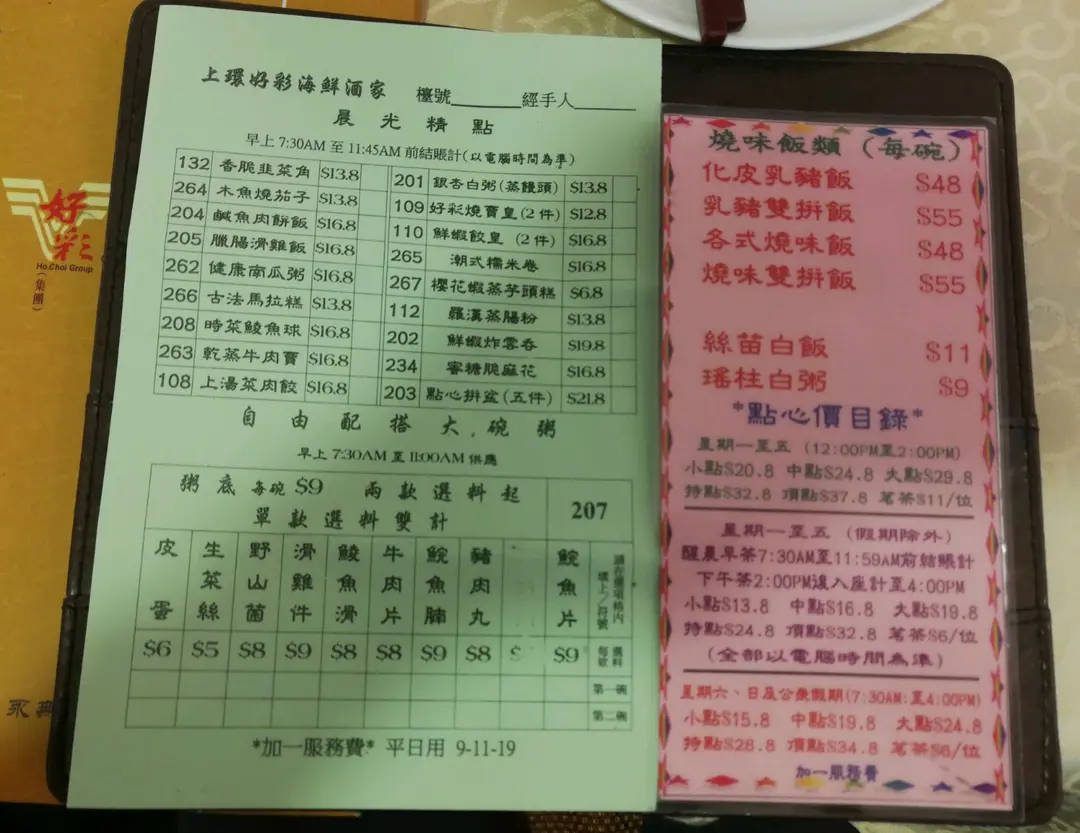 上環好彩海鮮酒家 檯號______經手人______
晨光精點
早上 7:30AM 至 11:45AM 前結賬計(以電腦時間為準)
132 香脆韭菜角 $13.8 201 銀杏白粥(蒸饅頭) $13.8
264 木魚燒茄子 $13.8 109 好彩燒賣皇(2件) $12.8
204 鹹魚肉餅飯 $16.8 110 鮮蝦餃皇 (2件) $16.8
205 臘腸滑雞飯 $16.8 265 潮式糯米卷 $16.8
262 健康南瓜粥 $16.8 267 櫻花蝦蒸芋頭糕 $6.8
266 古法馬拉糕 $13.8 112 羅漢蒸腸粉 $13.8
208 時菜鯪魚球 $16.8 202 鮮蝦炸雲吞 $19.8
263 乾蒸牛肉賣 $16.8 234 蜜糖脆麻花 $16.8
108 上湯菜肉餃 $16.8 203 點心拼盆(五件) $21.8
自由配搭大碗粥
早上 7:30AM 至 11:00AM 供應
粥底每碗 $9 兩款選料起
單款選料雙計
207
皮蛋 生菜絲 野山菌 滑雞件 鯪魚滑 牛肉片 鯇魚腩 豬肉丸 鯇魚片 請在選項格內填上／符號
$6 $5 $8 $9 $8 $8 $9 $8 $ $9 選料每款
第一碗
第二碗
*加一服務費* 平日用 9-11-19
燒味飯類 (每碗)
化皮乳豬飯 $48
乳豬雙拼飯 $55
各式燒味飯 $48
燒味雙拼飯 $55
絲苗白飯 $11
瑤柱白粥 $9
*點心價目錄*
星期一至五 (12:00PM至2:00PM)
小點$20.8 中點$24.8 大點$29.8
特點$32.8 頂點$37.8 茗茶$11/位
星期一至五 (假期除外)
醒晨早茶7:30AM至11:59AM前結賬計
下午茶2:00PM後入座計至4:00PM
小點$13.8 中點$16.8 大點$19.8
特點$24.8 頂點$32.8 茗茶$6/位
(全部以電腦時間為準)
星期六、日及公眾假期(7:30AM:至4:00PM)
小點$15.8 中點$19.8 大點$24.8
特點$28.8 頂點$34.8 茗茶$6/位
加一服務費
好彩
Ho Choi Group
(集團)